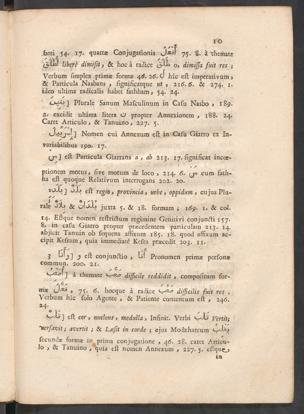 10
fort 54. 17. quartæ Conjugationis أَفْعَلَ 75. 8. à themate
liberè dimisit, & hoc à radice طَلَقَ o, dimissa fuit res;
Verbum simplex primæ formæ 46. 26. ل hîc est imperativum;
& Particula Nasbans, significatque ut, 216. 6. & 274. 1.
ideo ultima radicalis habet fathham, 54. 24.
Plurale Sanum Masculinum in Casu Nasbo, 189.
2. excidit ultima litera ن propter Annexionem, 188. 24.
Caret Articulo, & Tanuino, 227. 5.
Nomen cui Annexum est in Casu Giarro ex In-
variabilibus 190. 17.
est Particula Giarrans à, ab 213. 17. significat incœ-
ptionem motus, sive motum de loco, 214. 6. مَن cum fath-
ha est quoque Relativum interrogans 202. 20.
بَلْدَة est regio, provincia, urbs, oppidum, cujus Plu-
rale بِلَاد & بُلْدَان juxta 5. & 18. formam; 169. 1. & col.
14. Estque nomen restrictum regimine Genitivi conjuncti 157.
8. in casu Giarro propter præcedentem particulam 213. 14.
abjicit Tanuin ob sequens affixum 185. 18. quod affixum ac-
cipit Kesram, quia immediatè Kesra præcedit 203. 11.
و & أَنَا est conjunctio, أَنَا Pronomen primæ personæ
commun. 200. 21.
à themate صَعَّبَ difficile reddidit, compositum for-
mæ فَعَّلَ, 75. 6. hocque à radice صَعُبَ difficilis fuit res.
Verbum hîc solo Agente, & Patiente contentum est, 246.
24.
قَلْب est cor, molens, medulla, Infinit. Verbi قَلَبَ Vertit;
versavit; avertit; & Læsit in corde; ejus Modzharnum يَقْلِبُ
secundæ formæ in prima conjugatione, 46. 28. caret Articu-
lo, & Tanuino, quia est nomen Annexum, 227. 5. estque,
in